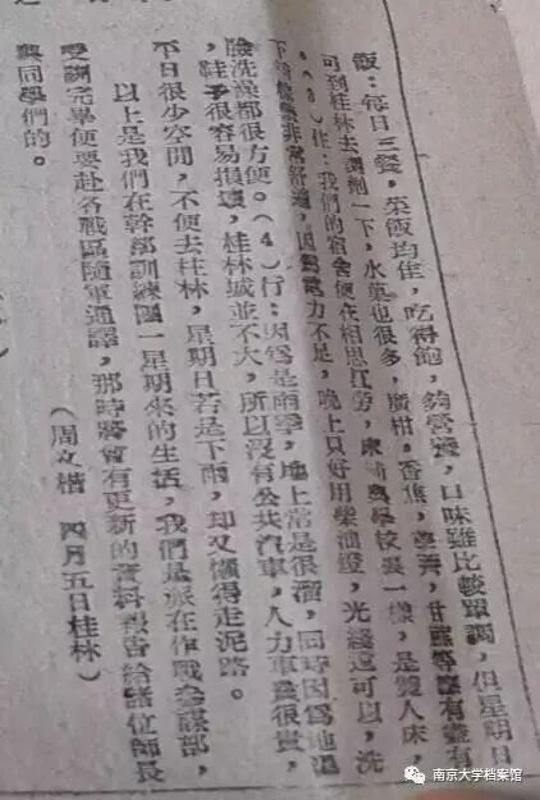 飯:每日三餐,菜飯均佳,吃得飽,夠營養,口味雖比較單調,但星期日
可到桂林去調劑一下,水菓也很多,廣柑,香焦,荸薺,甘蔗等應有盡有
。(3)住:我們的宿舍便在相思江旁,床鋪與學校裏一樣,是雙人床,
下鋪非常舒適,因爲電力不足,晚上只好用柴油燈,光綫還可以,洗
臉洗澡都很方便。(4)行:因爲是雨季,地上常是很溜,同時因爲地
,鞋子很容易損壞,桂林城並不大,所以沒有公共汽車,人力車很貴,
平日很少空閒,不便去桂林,星期日若是下雨,却又懶得走泥路。
以上是我們在幹部訓練團一星期來的生活,我們是派在作戰參謀部,
受訓完畢便要赴各戰區隨軍通譯,那時將會有更新的資料報告給諸位師長
與同學們的。
(周文楷 四月五日桂林)
南京大学档案馆